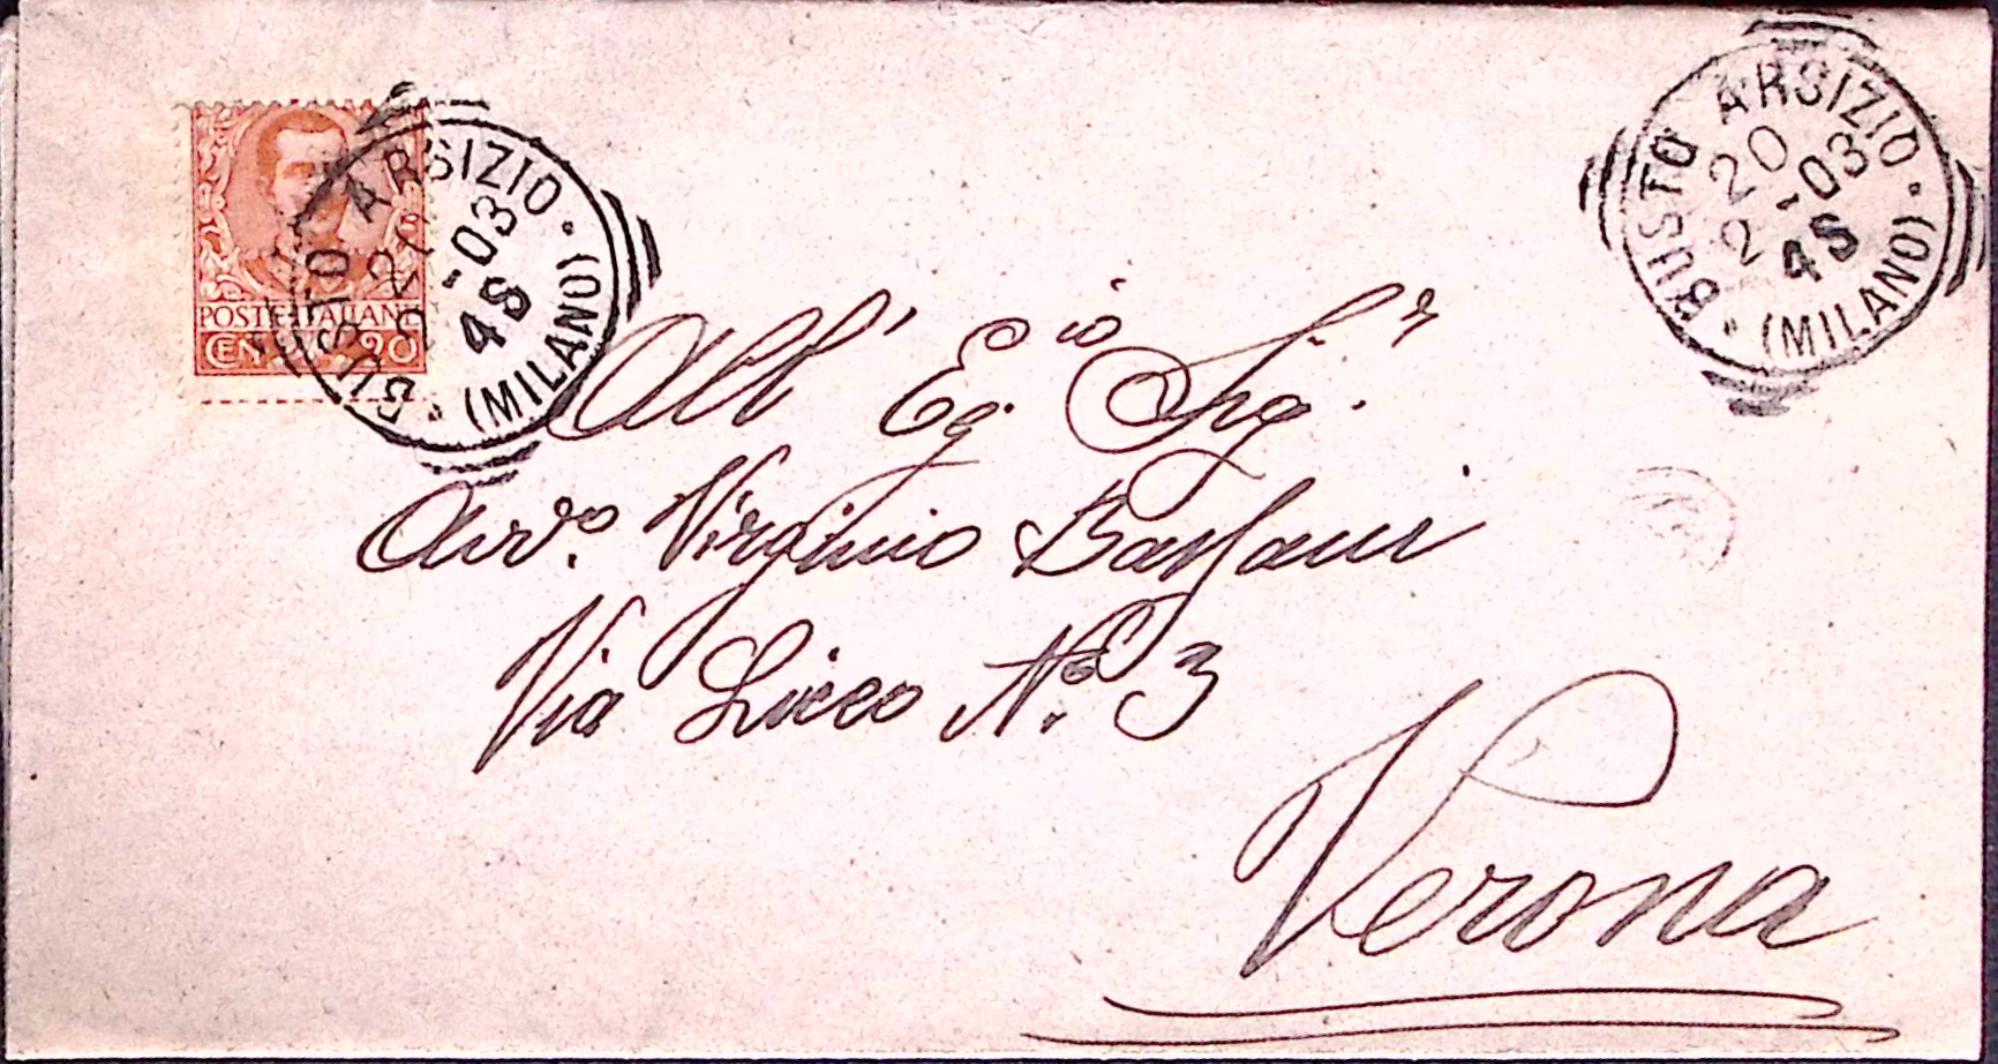 POSTE ITALIANE
CEN 20
BUSTO ARSIZIO
2 -03
4S
(MILANO)
BUSTO ARSIZIO
20
2 -03
4S
(MILANO)
All' Eg.io Sig.r
Avv.o Virginio Bassani
Via Liceo No. 3
Verona